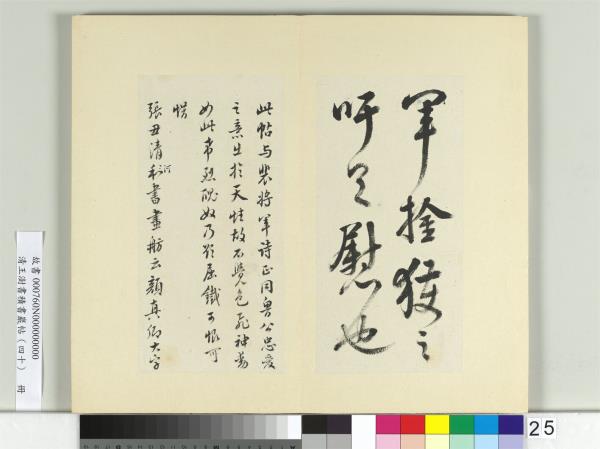 軍捨獲之
吁足慰也
此帖与裴將軍诗正同魯公忠愛
之意生於天性故不覺色飛神動
如此希烈醜奴乃欲屈鐵可恨可
恨
張丑清和書畫舫云顏真卿大字
河
故書 000760N000000000
清王澍書積書巖帖（四十） 冊
25